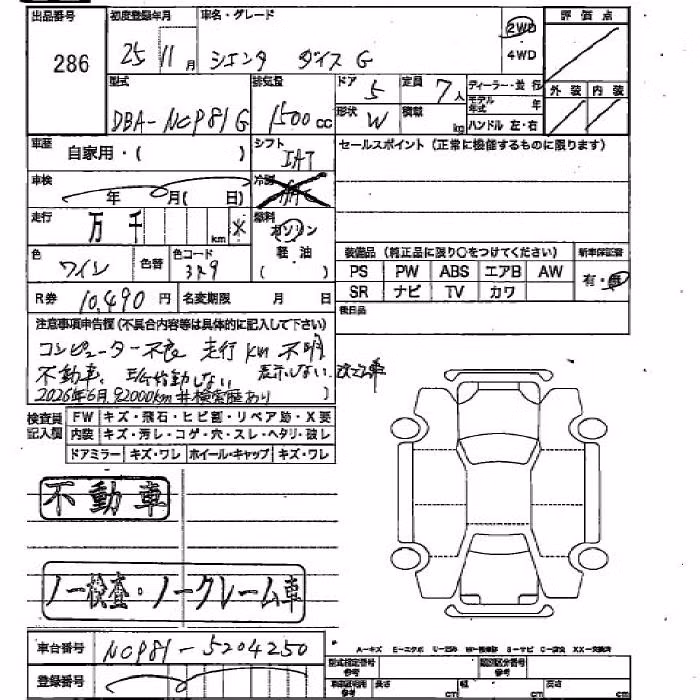 出品番号 初度登録年月 車名・グレード 評価点
286 25 11月 シエンタ ダイス G 2WD 4WD
型式 排気量 ドア 5 定員 7人 ディーラー・並行 外装 内装
DBA-NCP81G 1500cc 形状 W 積載 kg モデル年式 年
ハンドル 左・右
車歴 自家用・( ) シフト IAT セールスポイント（正常に機能するものに限ります）
車検 年 月( 日) 冷房 AAC
走行 万 千 km ※ 燃料 ガソリン 軽油 ( )
色 ワイン 色替 色コード 3R9
装備品（純正品に限り○をつけてください） 新車保証書
PS PW ABS エアB AW 有・無
SR ナビ TV カワ
R券 10,490円 名変期限 月 日 後日品
注意事項申告欄（不具合内容等は具体的に記入して下さい）
コンピューター不良 走行km 不明
不動車、 始動しない 表示しない 改ざん車
2026年6月 92000km 検索歴あり
検査員記入欄 FW キズ・飛石・ヒビ割・リペア跡・X要
内装 キズ・汚レ・コゲ・穴・スレ・ヘタリ・破レ
ドアミラー キズ・ワレ ホイール・キャップ キズ・ワレ
不動車
ノー検査・ノークレーム車
車台番号 NCP81-5204250
A-キズ E-エクボ U-凹み W-補修跡 S-サビ C-腐食 XX-交換済
登録番号 型式指定番号 参考 類別区分番号 参考
車検証記載 参考 長さ cm 幅 cm 高さ cm